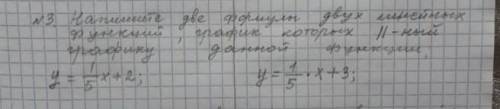 №3. Напишите две формулы двух линейных
функций, график которых ||-ный
графику данной функции,
y = 1/5 x + 2; y = 1/5 · x + 3;